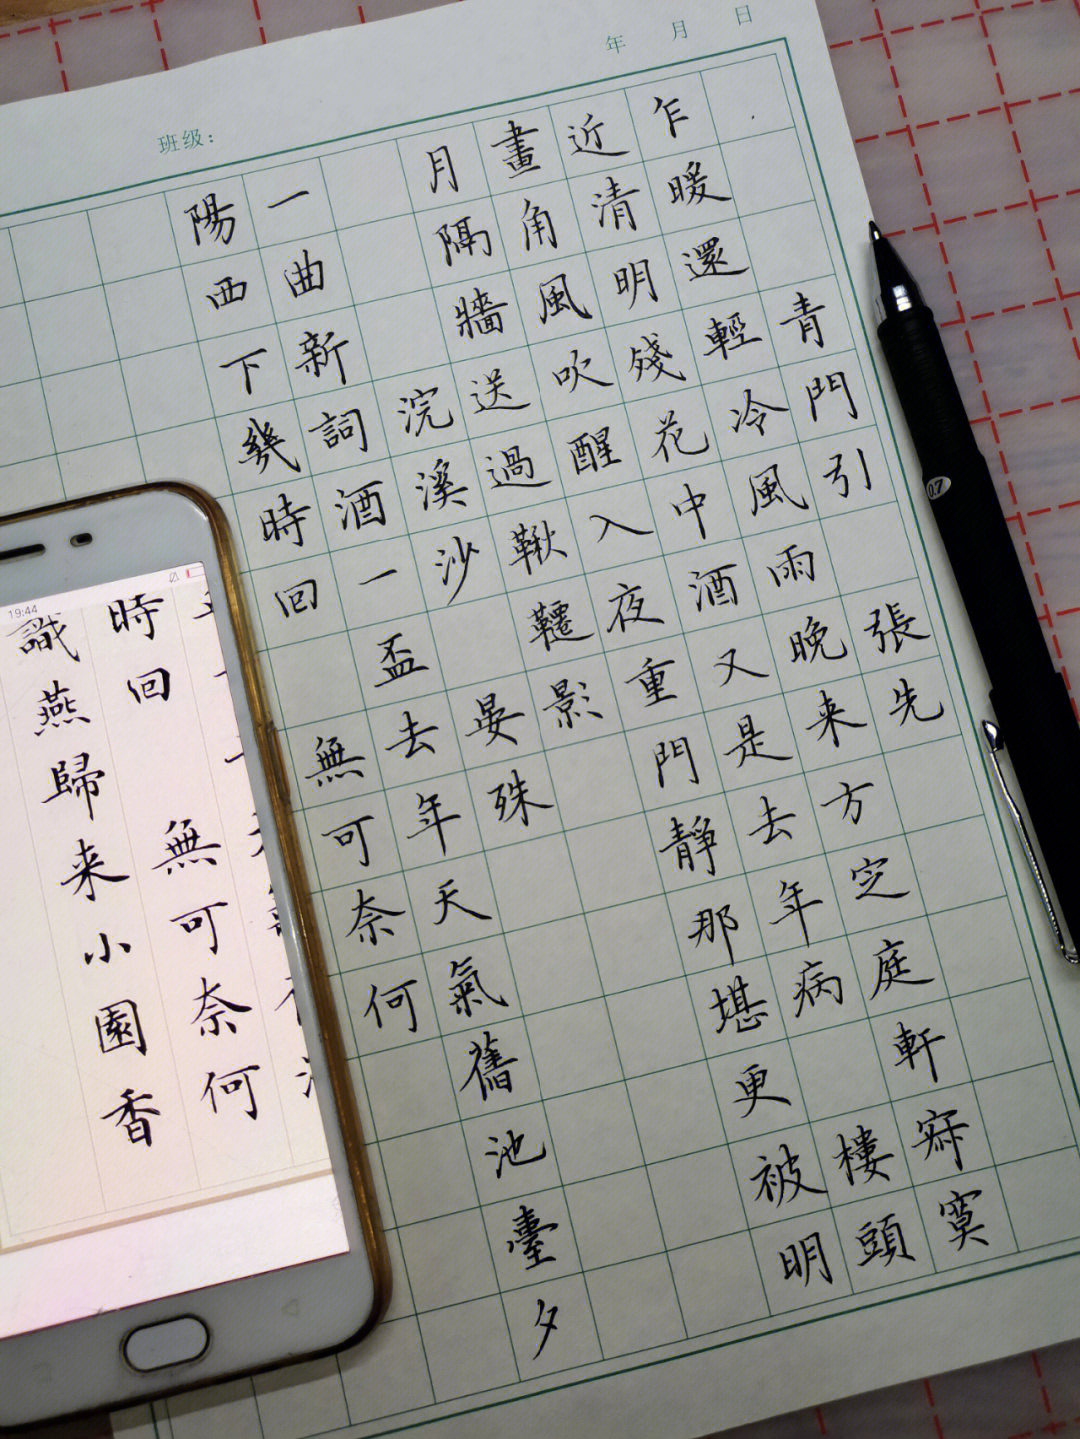 年 月 日
班级：
青門引 張先
乍暖還輕冷風雨晚来方定庭軒寂寞
近清明殘花中酒又是去年病 樓頭
畫角風吹醒入夜重門靜那堪更被明
月隔牆送過鞦韆影
浣溪沙 晏殊
一曲新詞酒一盃去年天氣舊池臺夕
陽西下幾時回 無可奈何
19:44
時回 無可奈何
識燕歸来小園香
0.7